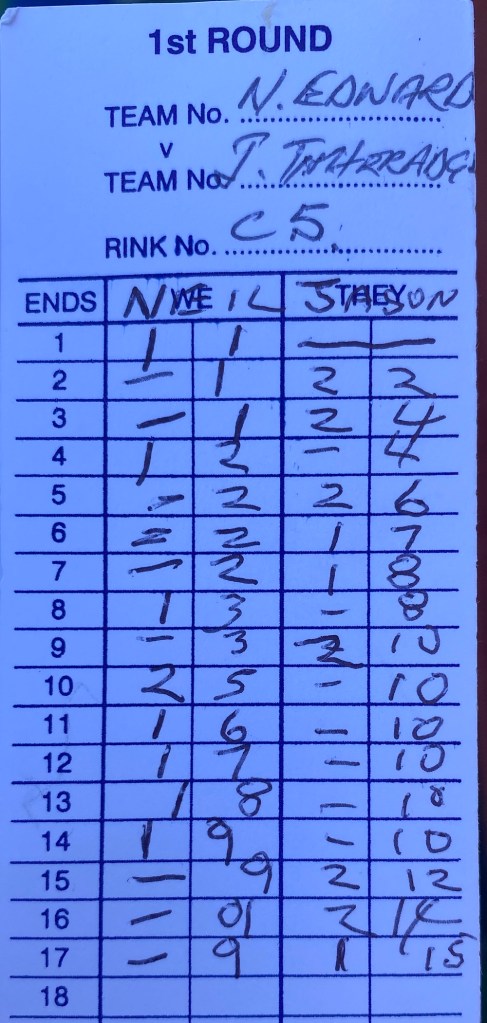 1st ROUND
TEAM No. N. EDWARD
V
TEAM No. J.
RINK No. C5.
ENDS WE NEIL THEY JASON
1 1 1 —
2 – 1 2 2
3 – 1 2 4
4 1 2 – 4
5 – 2 2 6
6 = 2 1 7
7 – 2 1 8
8 1 3 – 8
9 – 3 2 10
10 2 5 – 10
11 1 6 – 10
12 1 7 – 10
13 1 8 – 10
14 1 9 – 10
15 – 9 2 12
16 – 2 14
17 – 9 1 15
18